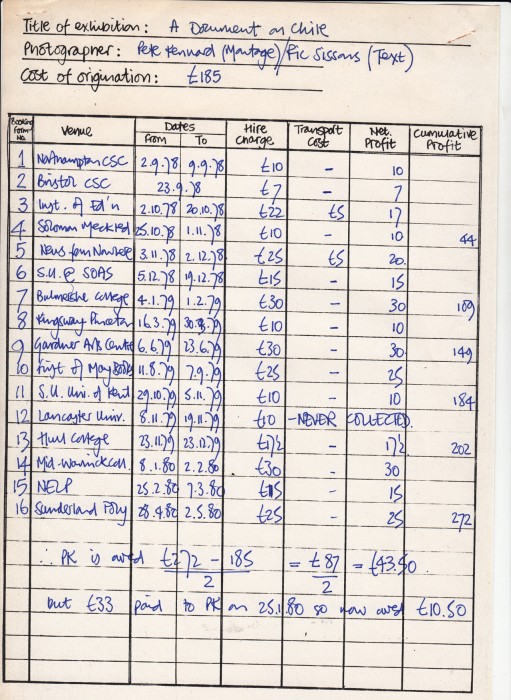 Title of exhibition: A Document on Chile
Photographer: Pete Kennard (Montage)/Ric Sissons (Text)
Cost of origination: £185
Booking Form No. Venue Dates From To Hire Charge Transport Cost Net. Profit Cumulative Profit
1 Northampton CSC 2.9.78 9.9.78 £10 - 10
2 Bristol CSC 23.9.78 £7 - 7
3 Inst. of Ed'n 2.10.78 20.10.78 £22 £5 17
4 Solomon 25.10.78 1.11.78 £10 - 10 44
5 News from Nowhere 3.11.78 2.12.78 £25 £5 20.
6 S.U. @ SOAS 5.12.78 19.12.78 £15 - 15
7 Bulmershe College 4.1.79 1.2.79 £30 - 30 109
8 Kingsway Princeton 16.3.79 30.3.79 £10 - 10
9 Gardner Arts Centre 6.6.79 23.6.79 £30 - 30 149
10 First of May Books 11.8.79 7.9.79 £25 - 25
11 S.U. Uni. of Kent 29.10.79 5.11.79 £10 - 10 184
12 Lancaster Univ. 8.11.79 19.11.79 £10 - NEVER COLLECTED.
13 Hull College 23.11.79 23.12.79 - 202
14 Mid-Warwick Coll. 8.1.80 2.2.80 £30 - 30
15 NELP 25.2.80 7.3.80 £15 - 15
16 Sunderland Poly 28.4.80 2.5.80 £25 - 25 272
∴ PK is owed £272 - 185 = £87 = £43.50.
2 2
but £33 paid to PK on 25.1.80 so now owed £10.50